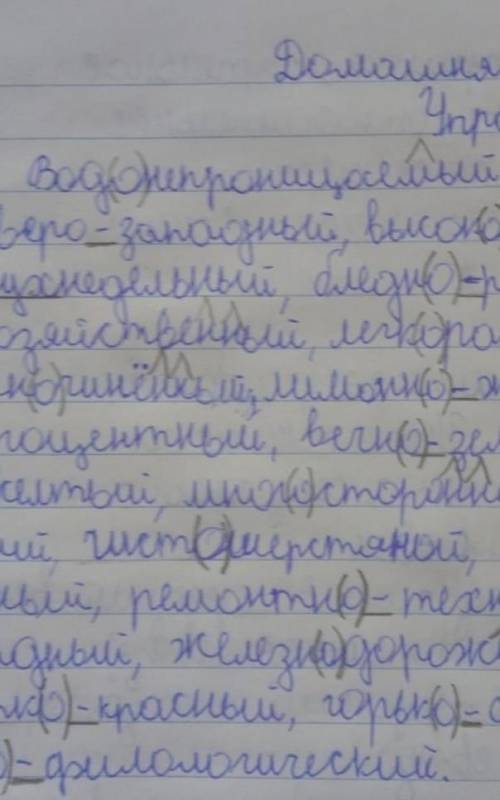 Домашня
Упр
Вод(о)непроницаемый
веро-западный, высок(о)
ухнедельный, бледн(о)-р
озяйственный, легк(о)ра
н(о)чинённый, лимонн(о)-ж
роцентный, вечн(о)-зел
желтый, мног(о)сторонн
ий, чист(о)шерстяной,
ный, ремонтн(о)-техн
дный, железн(о)дорожн
рк(о)-красный, горьк(о)-с
о)-филологический.